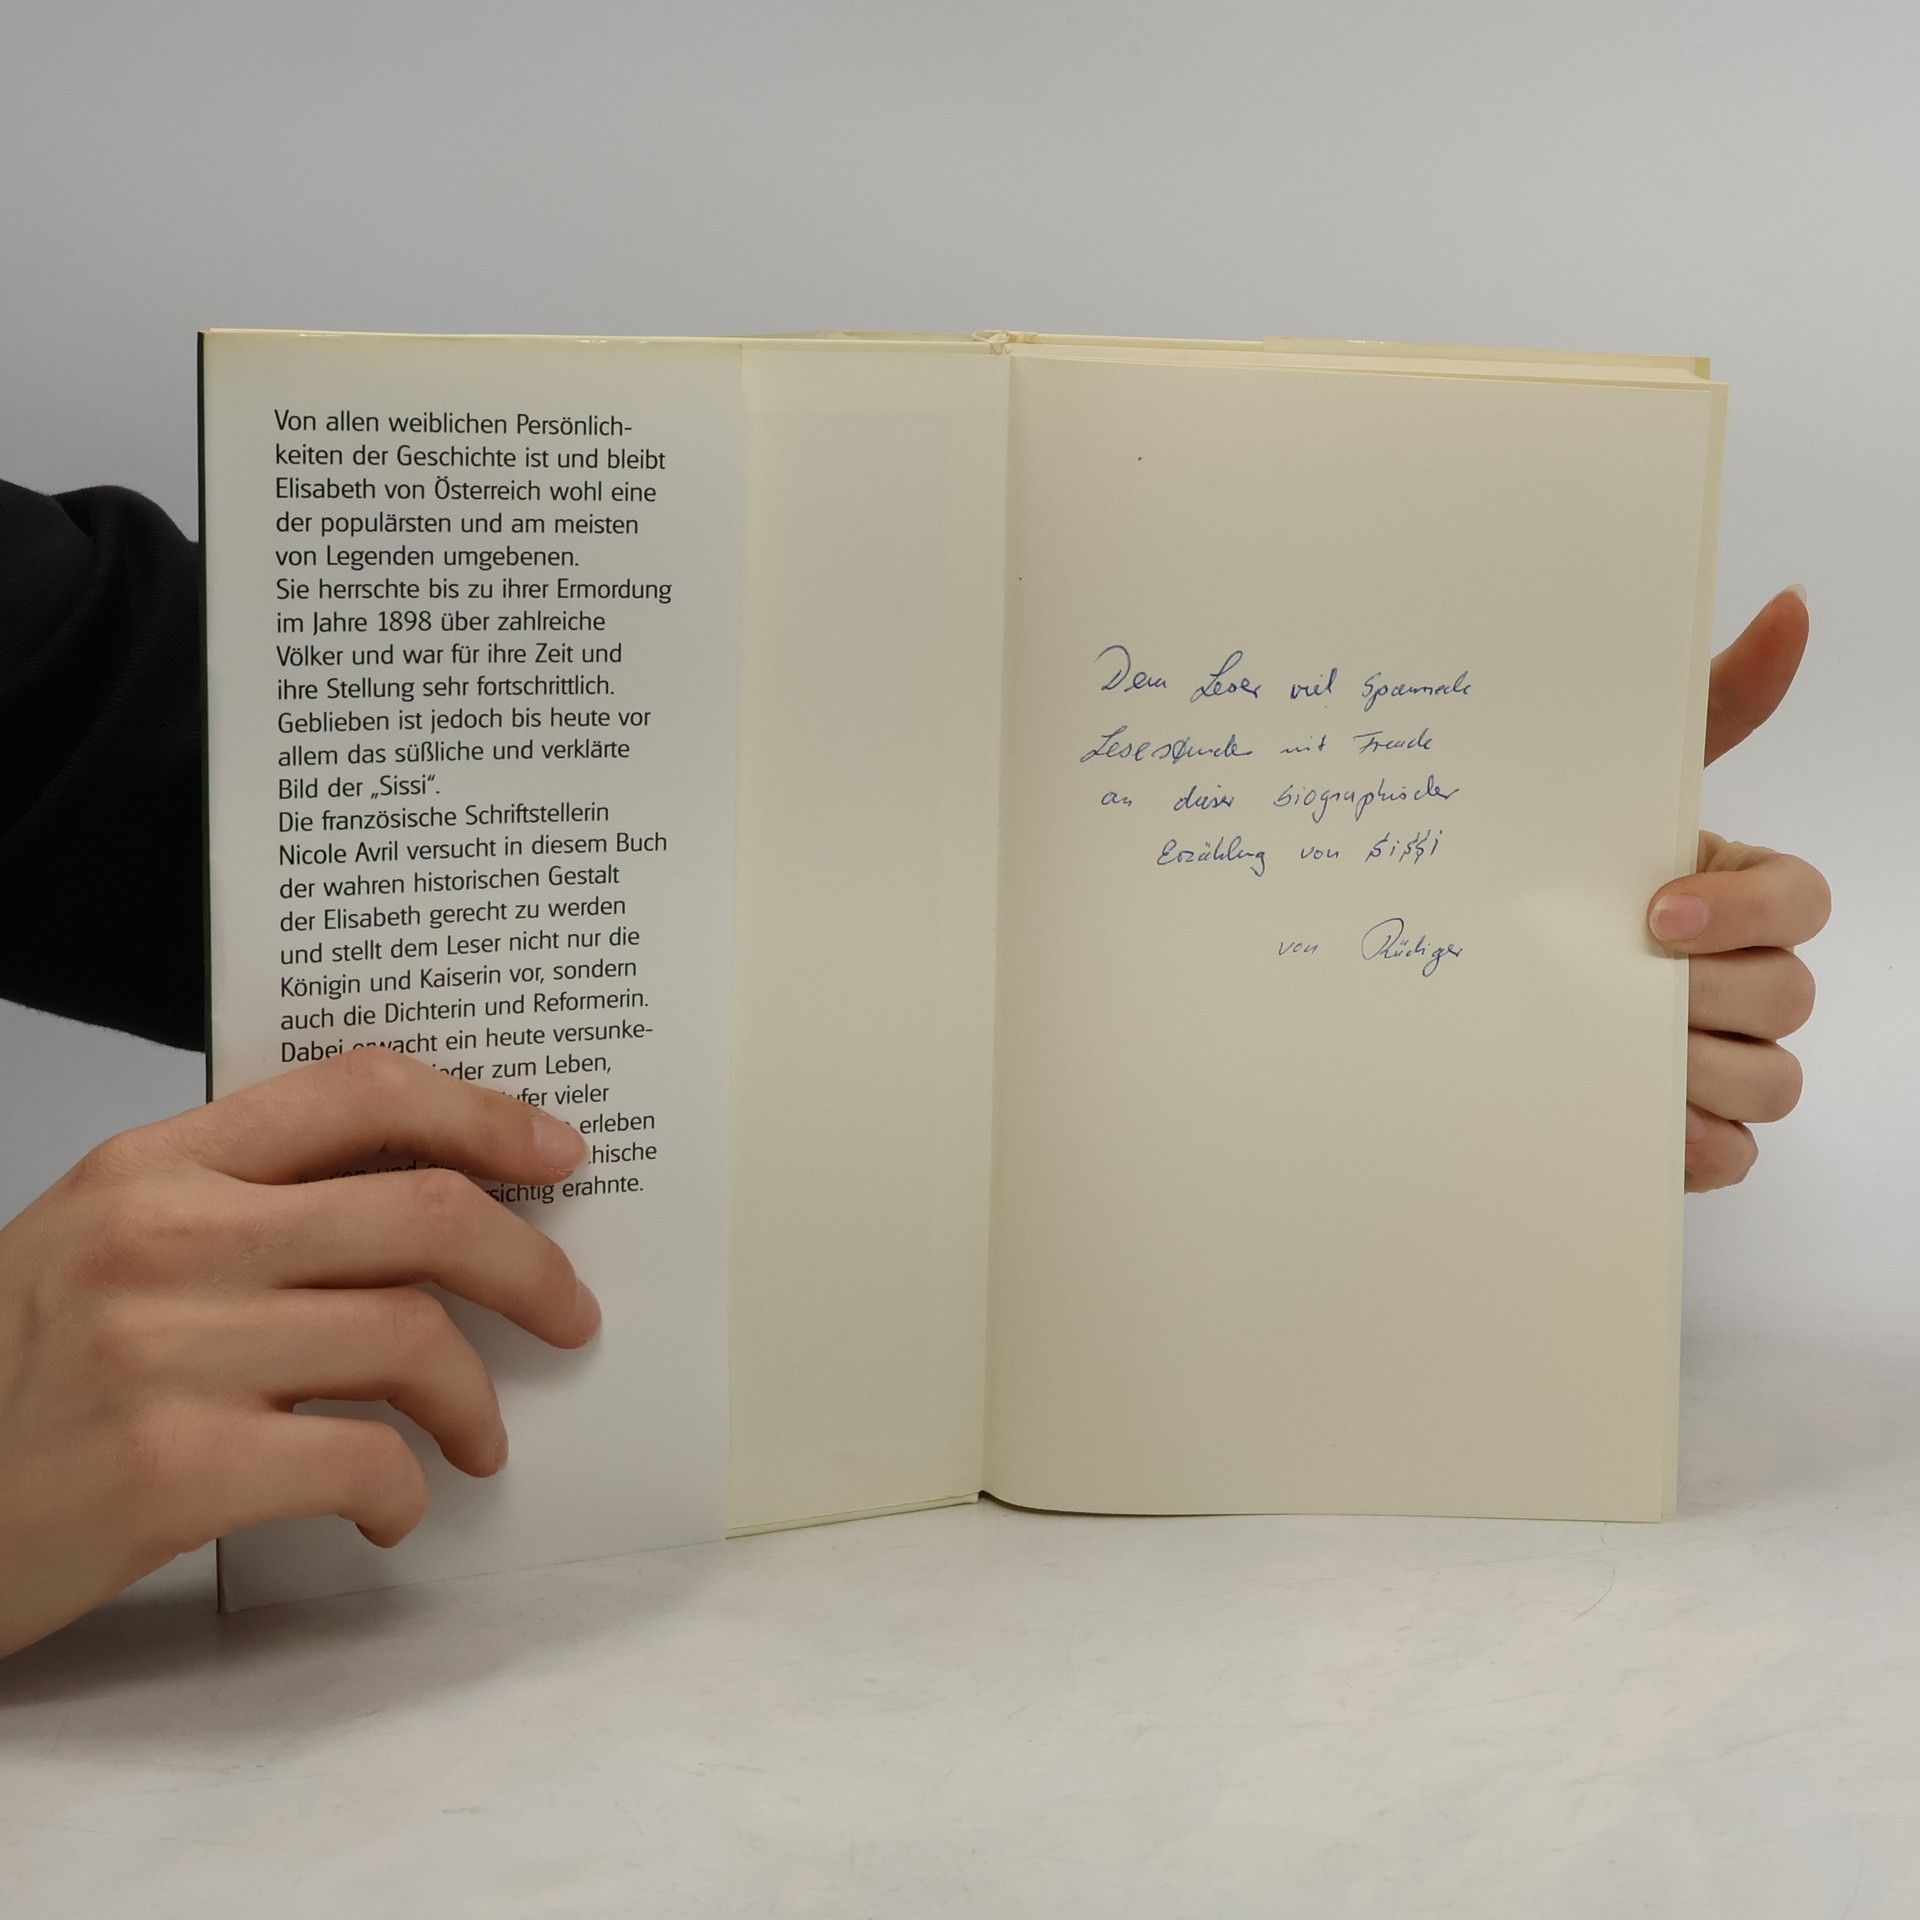 Von allen weiblichen Persönlich-
keiten der Geschichte ist und bleibt
Elisabeth von Österreich wohl eine
der populärsten und am meisten
von Legenden umgebenen.
Sie herrschte bis zu ihrer Ermordung
im Jahre 1898 über zahlreiche
Völker und war für ihre Zeit und
ihre Stellung sehr fortschrittlich.
Geblieben ist jedoch bis heute vor
allem das süßliche und verklärte
Bild der „Sissi“.
Die französische Schriftstellerin
Nicole Avril versucht in diesem Buch
der wahren historischen Gestalt
der Elisabeth gerecht zu werden
und stellt dem Leser nicht nur die
Königin und Kaiserin vor, sondern
auch die Dichterin und Reformerin.
Dabei erwacht ein heute versunke-
zum Leben,
vieler
erleben
erahnte.
Dem Leser viel Spannende
Lesestunden mit Freude
an dieser biographischer
Erzählung von Sissi
von Rüdiger